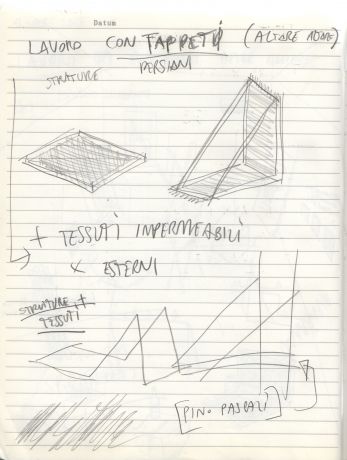 Datum
LAVORO CON TAPPETI
PERSIANI
STRUTTURE
+ TESSUTI IMPERMEABILI
× ESTERNI
STRUTTURE +
TESSUTI
[PINO PASCALI]